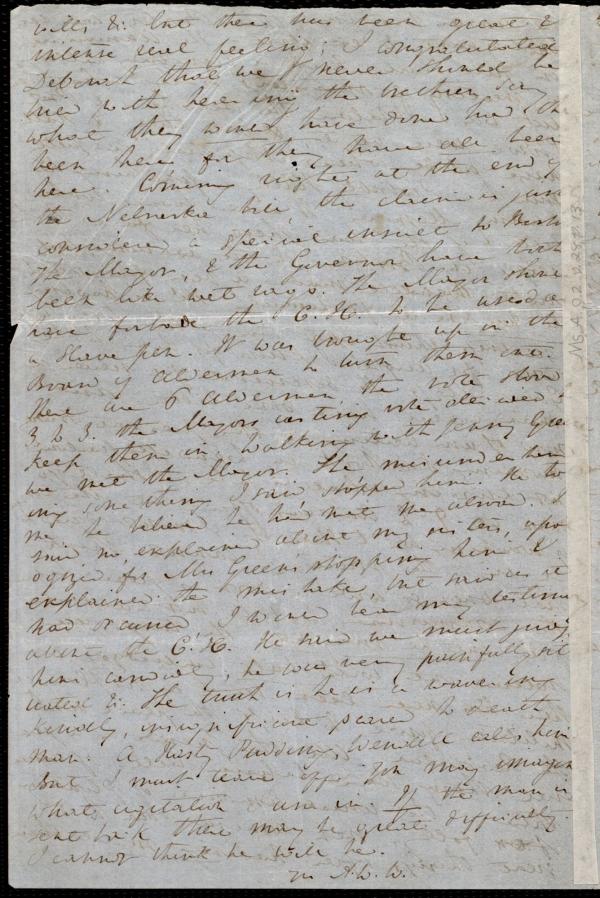 wills &. but there has been great &
intense real feeling; I congratulated
Deborah that we never should be
tried with hearing the brethren say
what they would have done had they
been here for they have all been
here. Coming right at the end of
the Nebraska bill, the claim is just
considered a special insult to Boston
The Mayor, & the Governor have both
been like wet rags. The Mayor should
have forbade the C. H. to be used as
a slave pen. It was brought up in the
Board of Aldermen to turn them out.
There are 6 Aldermen, the vote stood
3 to 3. the Mayors casting vote decided to
keep them in. Walking with Jenny Green
we met the Mayor. She misunderstand
ing something I said stopped him. He told
me he believed he had met me abroad. I
said no, explained about my sisters, apol
ogized for Mrs Greens stopping him &
explained the mistake, but said as it
had occurred I would bear my testimony
about the C. H. He said we must judge
him candidly, he was very painfully sit
uated &. The truth is he is a wavering
kindly, insignificant scared to death
man. A Hasty Pudding Wendell calls him
But I must leave off. You may imagine
what agitation we are in. If the man is
sent back there may be great difficulty.
I cannot think he will be.
A. W. W.
Ms.A.9.2.28 p.13